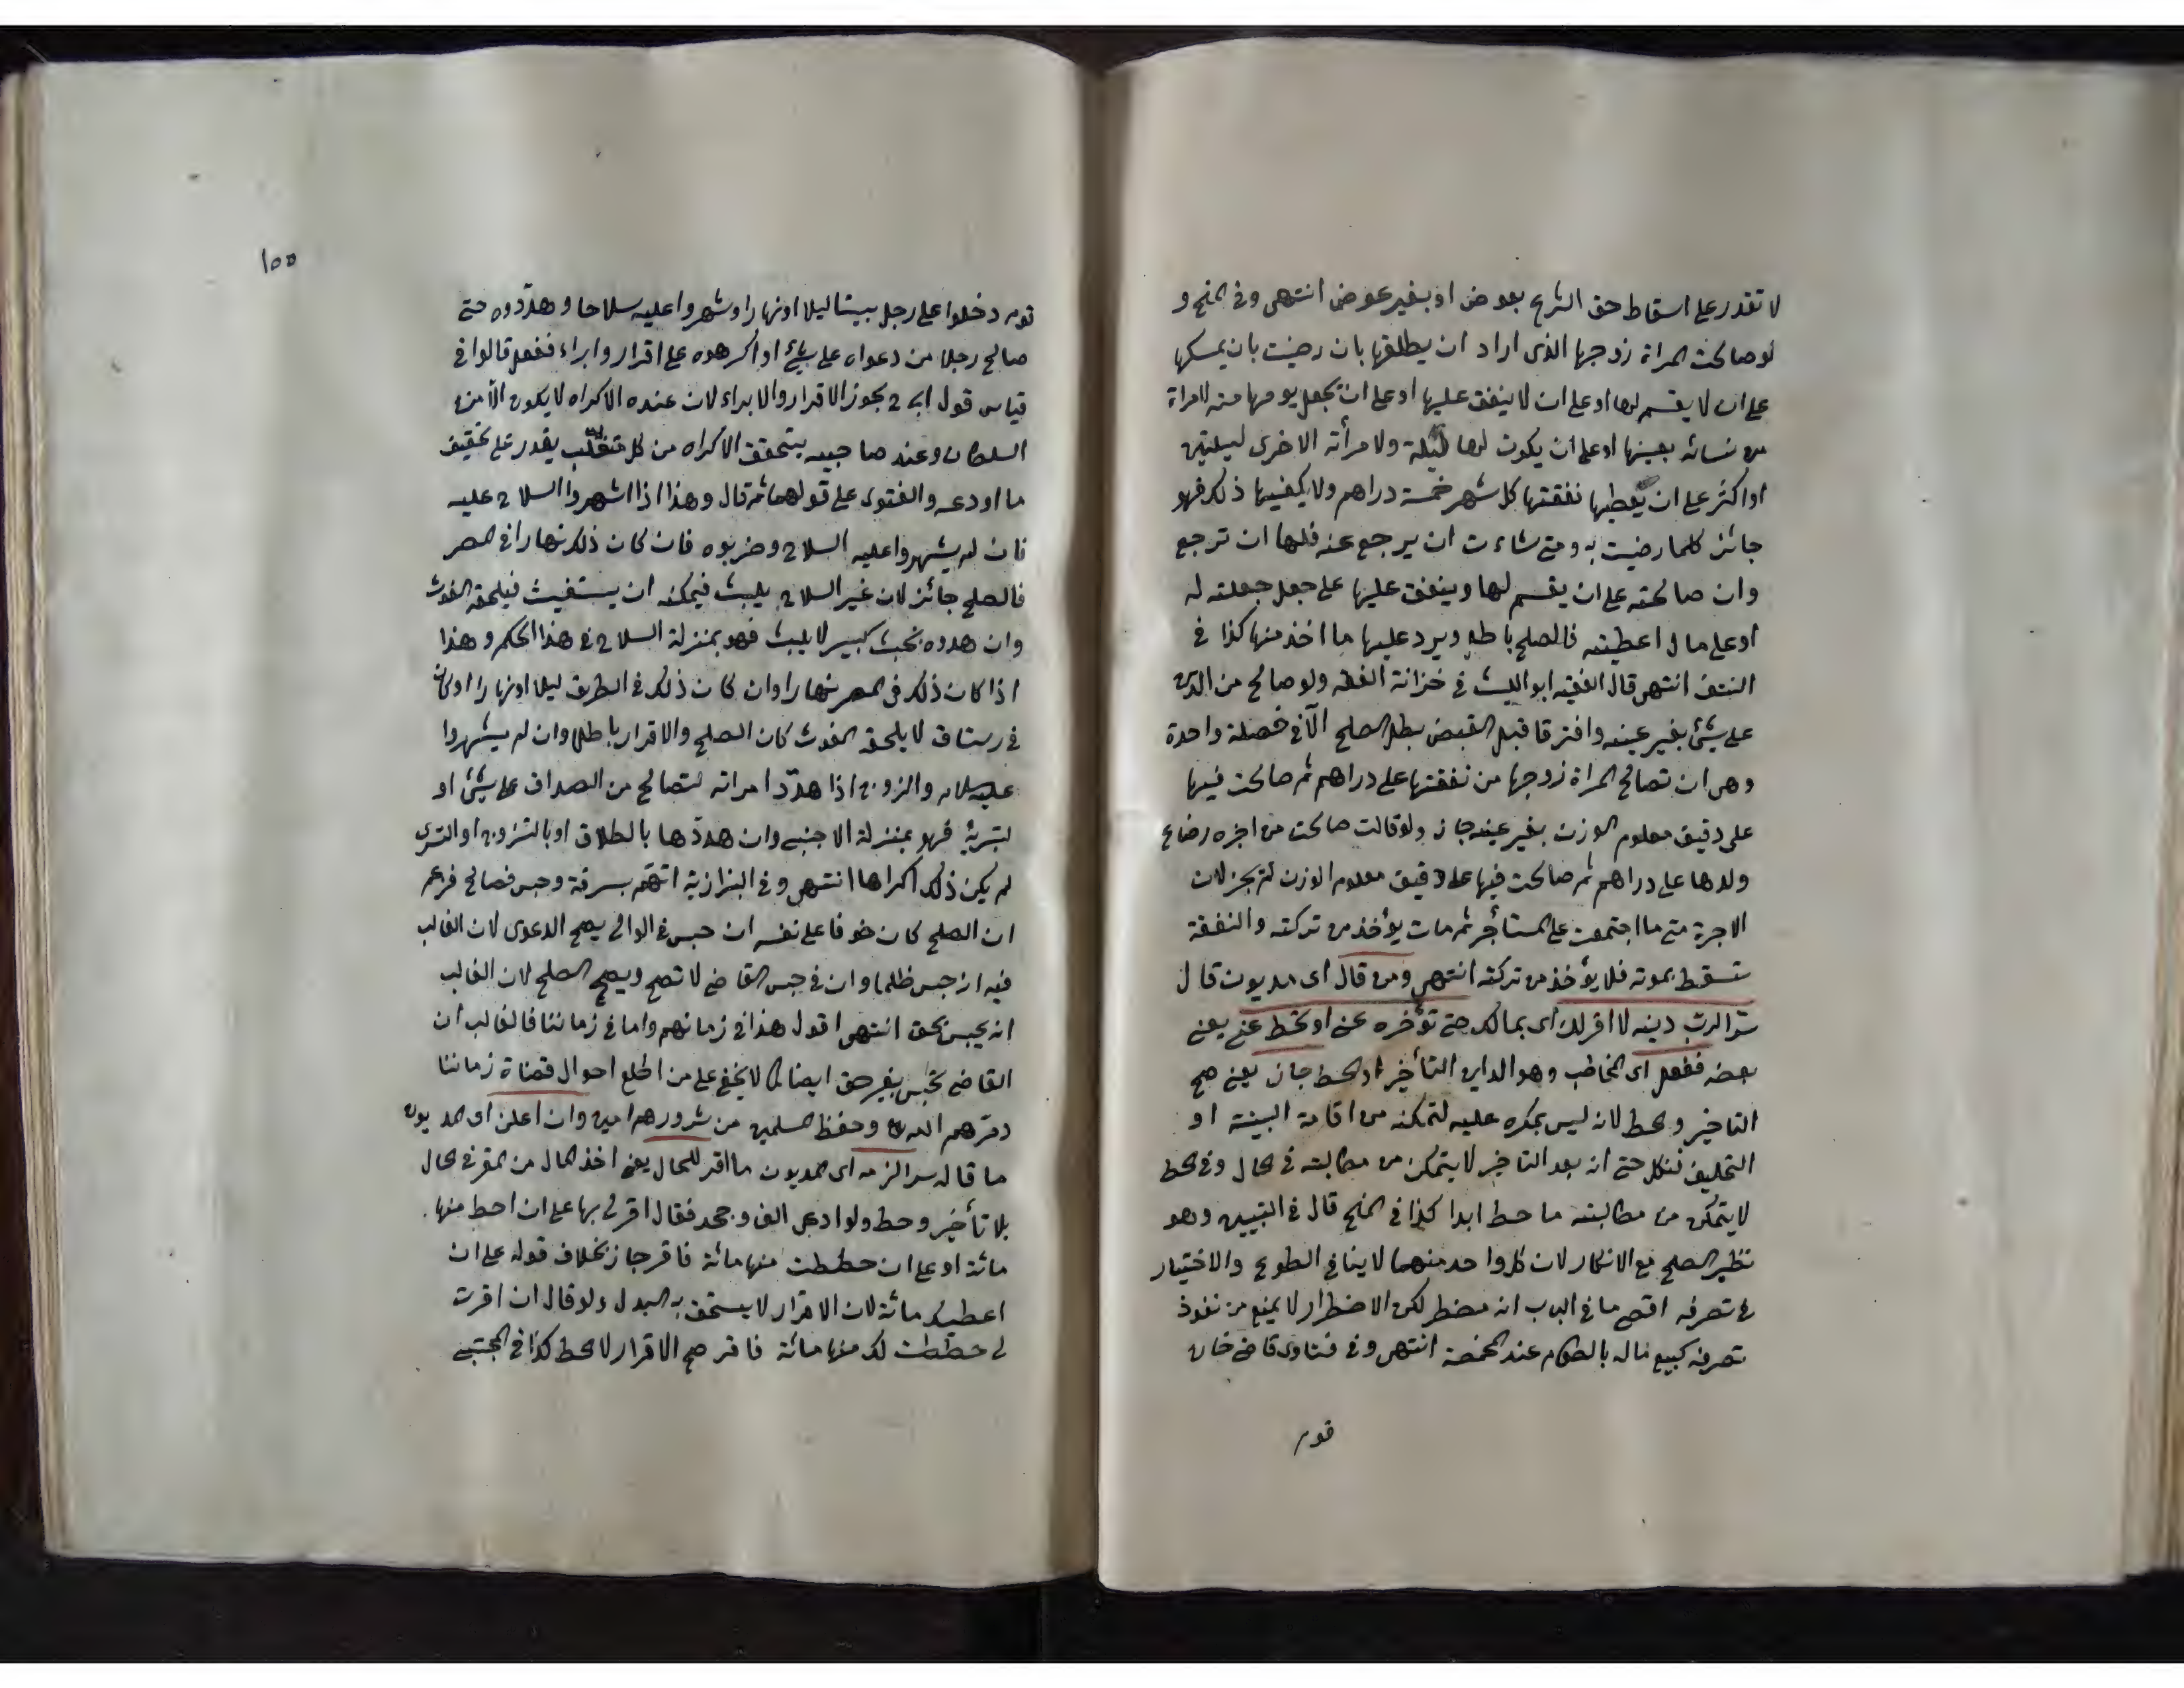 لا تقدر على اسقاط حق الشرع بعوض او بغير عوض انتهى وفي المنح و
لو صالحت المراة زوجها الذى اراد ان يطلقها بان رضيت بان يمسكها
على ان لا يقسم لها او على ان لا ينفق عليها او على ان يجعل يومها منه لامراة
من نسائه بعينها او على ان يكون لها ليلة ولامرأته الاخرى ليلتين
او اكثر على ان يعطيها نفقتها كل شهر خمسة دراهم ولا يكفيها ذلك فهو
جائز كلما رضيت به ومتى شاءت ان يرجع عنه فلها ان ترجع
وان صالحته على ان يقسم لها وينفق عليها على جعل جعلته له
او على مال اعطيته فالصلح باطل ويرد عليها ما اخذ منها كذا في
النتف انتهى قال الفقيه ابو الليث في خزانة الفقه ولو صالح من الدين
على شئ بغير عينه وافترقا قبل القبض بطل الصلح الا في خصلة واحدة
وهي ان تصالح المراة زوجها من نفقتها على دراهم ثم صالحت فيها
على دقيق معلوم الوزن بغير عينه جاز ولو قالت صالحت من اجرة رضاع
ولدها على دراهم ثم صالحت فيها على دقيق معلوم الوزن لم يجز لان
الاجرة متى ما اجتمعت على المستأجر ثم مات يؤخذ من تركته والنفقة
تسقط بموته فلا يؤخذ من تركته انتهى ومن قال اى مديون قال
سرا لرب دينه لا اقر لك اى بمالك حتى تؤخره عني او تحط عني يعني
بعضه ففعل اى المخاطب وهو الداين التأخير او الحط جاز يعني صح
التاخير والحط لانه ليس بمكره عليه لتمكنه من اقامة البينة او
التحليف فنكل حتى انه بعد التاخير لا يتمكن من مطالبته في الحال وفي الحط
لا يتمكن من مطالبته ما حط ابدا كذا في المنح قال في التبيين وهو
نظير الصلح مع الانكار لان كل واحد منهما لا ينافي الطوع والاختيار
في تصرفه اقصى ما في الباب انه مضطر لكن الاضطرار لا يمنع من نفوذ
تصرفه كبيع ماله بالطعام عند المخمصة انتهى وفي فتاوى قاضي خان
قوم
١٥٥
قوم دخلوا على رجل بيتا ليلا او نهارا وشهروا عليه سلاحا وهددوه حتى
صالح رجلا من دعواه على شئ او اكرهوه على اقرار وابراء ففعل قالوا في
قياس قول ابى ح يجوز الاقرار والابراء لان عنده الاكراه لا يكون الا من
السلطان وعند صاحبيه يتحقق الاكراه من كل متغلب يقدر على تحقيق
ما اودعه والفتوى على قولهما ثم قال وهذا اذا شهروا السلاح عليه
فان لم يشهروا عليه السلاح وضربوه فان كان ذلك نهارا في المصر
فالصلح جائز لان غير السلاح يلبث فيمكنه ان يستغيث فيلحقه الغوث
وان هددوه بخشب كبير لا يلبث فهو بمنزلة السلاح في هذا الحكم وهذا
اذا كان ذلك في المصر نهارا وان كان ذلك في الطريق ليلا او نهارا او كان
في رستاق لا يلحقه الغوث كان الصلح والاقرار باطلا وان لم يشهروا
عليه سلاح والزوج اذا هدد امراته لتصالح من الصداق على شئ او
لتبرئه فهو بمنزلة الاجنبي وان هددها بالطلاق او بالتزوج او التسرى
لم يكن ذلك اكراها انتهى وفي البزازية اتهم بسرقة وحبس فصالح فزعم
ان الصلح كان خوفا على نفسه ان حبس في الوالي يصح الدعوى لان الغالب
فيه انه حبس ظلما وان في حبس القاضي لا تصح ويصح الصلح لان الغالب
انه يحبس بحق انتهى اقول هذا في زمانهم واما في زماننا فالغالب ان
القاضي يحبس بغير حق ايضا كما لا يخفى على من اطلع احوال قضاة زماننا
دمرهم الله وحفظ المسلمين من شرورهم امين وان اعلن اى المديون
ما قاله سرا لزمه اى المديون ما اقر للحال يعني اخذ المال من المقر في الحال
بلا تأخير وحط ولو ادعى الف وجحد فقال اقر لي بها على ان احط منها
مائة او على ان حططت منها مائة فاقر جاز بخلاف قوله على ان
اعطيك مائة لان الاقرار لا يستحق به البدل ولو قال ان اقرت
لي حططت لك منها مائة فاقر صح الاقرار لا الحط كذا في المجتبى